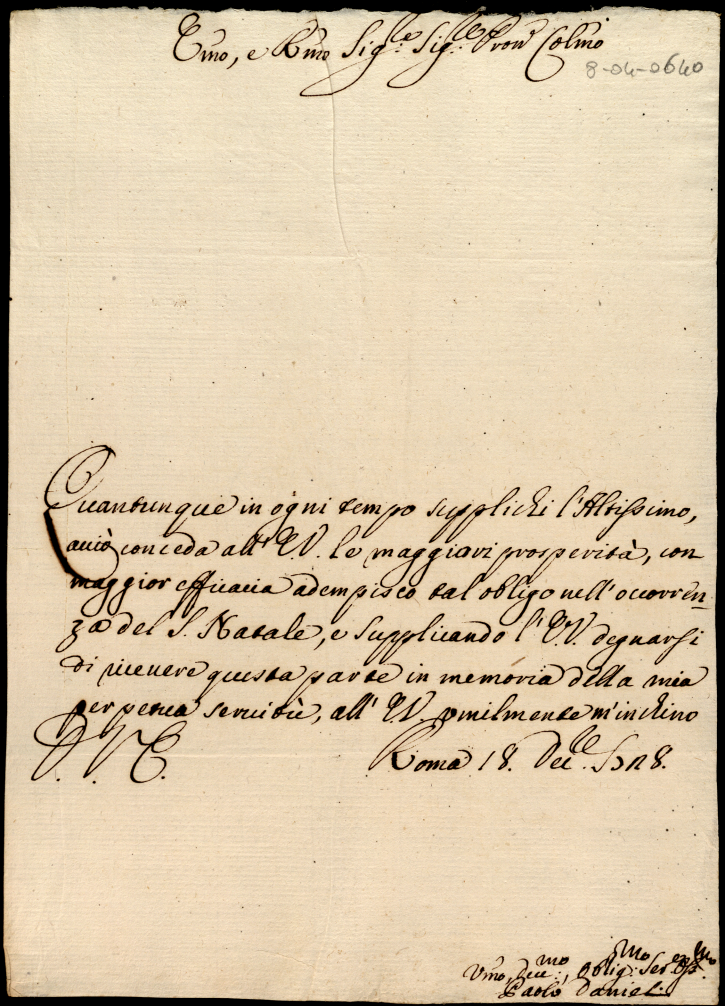 Emo, e Rmo Sig.re Sig.re Pron Colmo
8-04-0640
Quantunque in ogni tempo supplichi l'Altissimo,
acciò conceda all' E.V. le maggiori prosperità, con
maggior efficacia adempisco tal obligo nell' occorren=
za del S. Natale, e supplicando l' E.V. degnarsi
di ricevere questa parte in memoria della mia
perpetua servitù, all' E.V. umilmente m'inchino
D. V. E. Roma 18. Dec.bre 1728.
Vmo, Dev.mo, Oblig.mo Ser.e Oss.mo
Paolo Daniel.